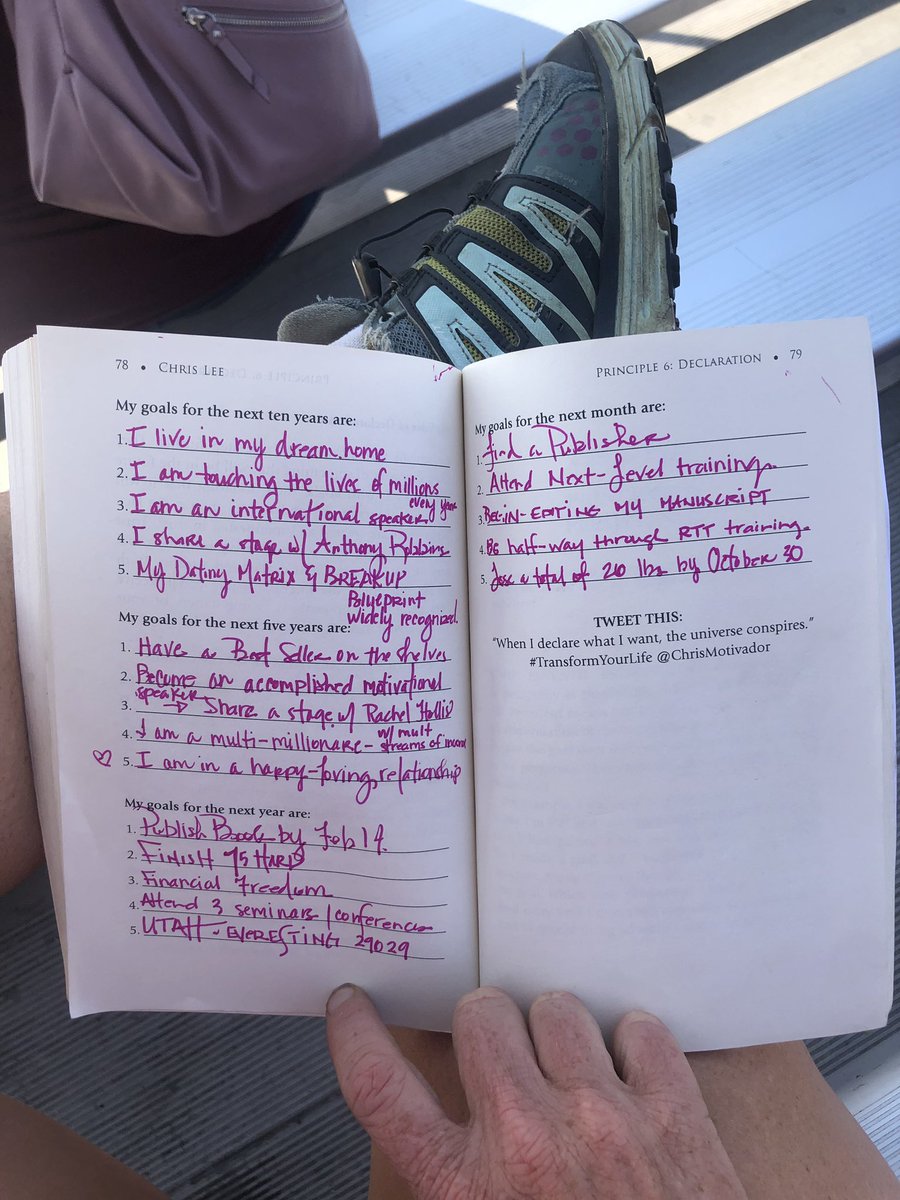 78 • CHRIS LEE
My goals for the next ten years are:
1. I live in my dream home
2. I am touching the lives of millions
every year
3. I am an international speaker
4. I share a stage w/ Anthony Robbins
5. My Dating Matrix & BREAKUP
Blueprint
widely recognized.
My goals for the next five years are:
1. Have a Best Seller on the shelves
2. Become an accomplished motivational
speaker
3. → Share a stage w/ Rachel Hollis
4. I am a multi-millionare - w/ mult
streams of income
5. I am in a happy-loving relationship
My goals for the next year are:
1. Publish Book by Feb 14.
2. FINISH 75 HARD
3. Financial Freedom
4. Attend 3 seminars / conferences
5. UTAH - EVERESTING 29029
PRINCIPLE 6: DECLARATION • 79
My goals for the next month are:
1. find a Publisher
2. Attend Next-Level training.
3. BEGIN-EDITING MY MANUSCRIPT
4. BE half-way through RTT training.
5. Lose a total of 20 lbs by October 30
TWEET THIS:
"When I declare what I want, the universe conspires."
#TransformYourLife @ChrisMotivador